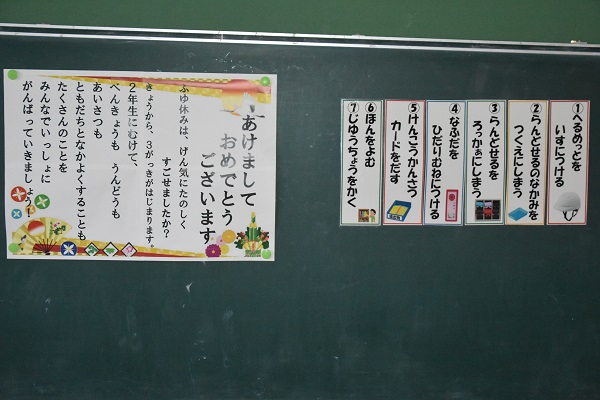 あけまして
おめでとう
ございます
ふゆ休みは、げん気にたのしく
すごせましたか?
きょうから、3がっきがはじまります。
2年生にむけて、
べんきょうも うんどうも
あいさつも
ともだちとなかよくすることも
たくさんのことを
みんなでいっしょに
がんばっていきましょう!
①へるめっとを
いすにつける
②らんどせるのなかみを
つくえにしまう
③らんどせるを
ろっかぁにしまう
④なふだを
ひだりむねにつける
⑤けんこうかんさつ
カードをだす
⑥ほんをよむ
⑦じゆうちょうをかく